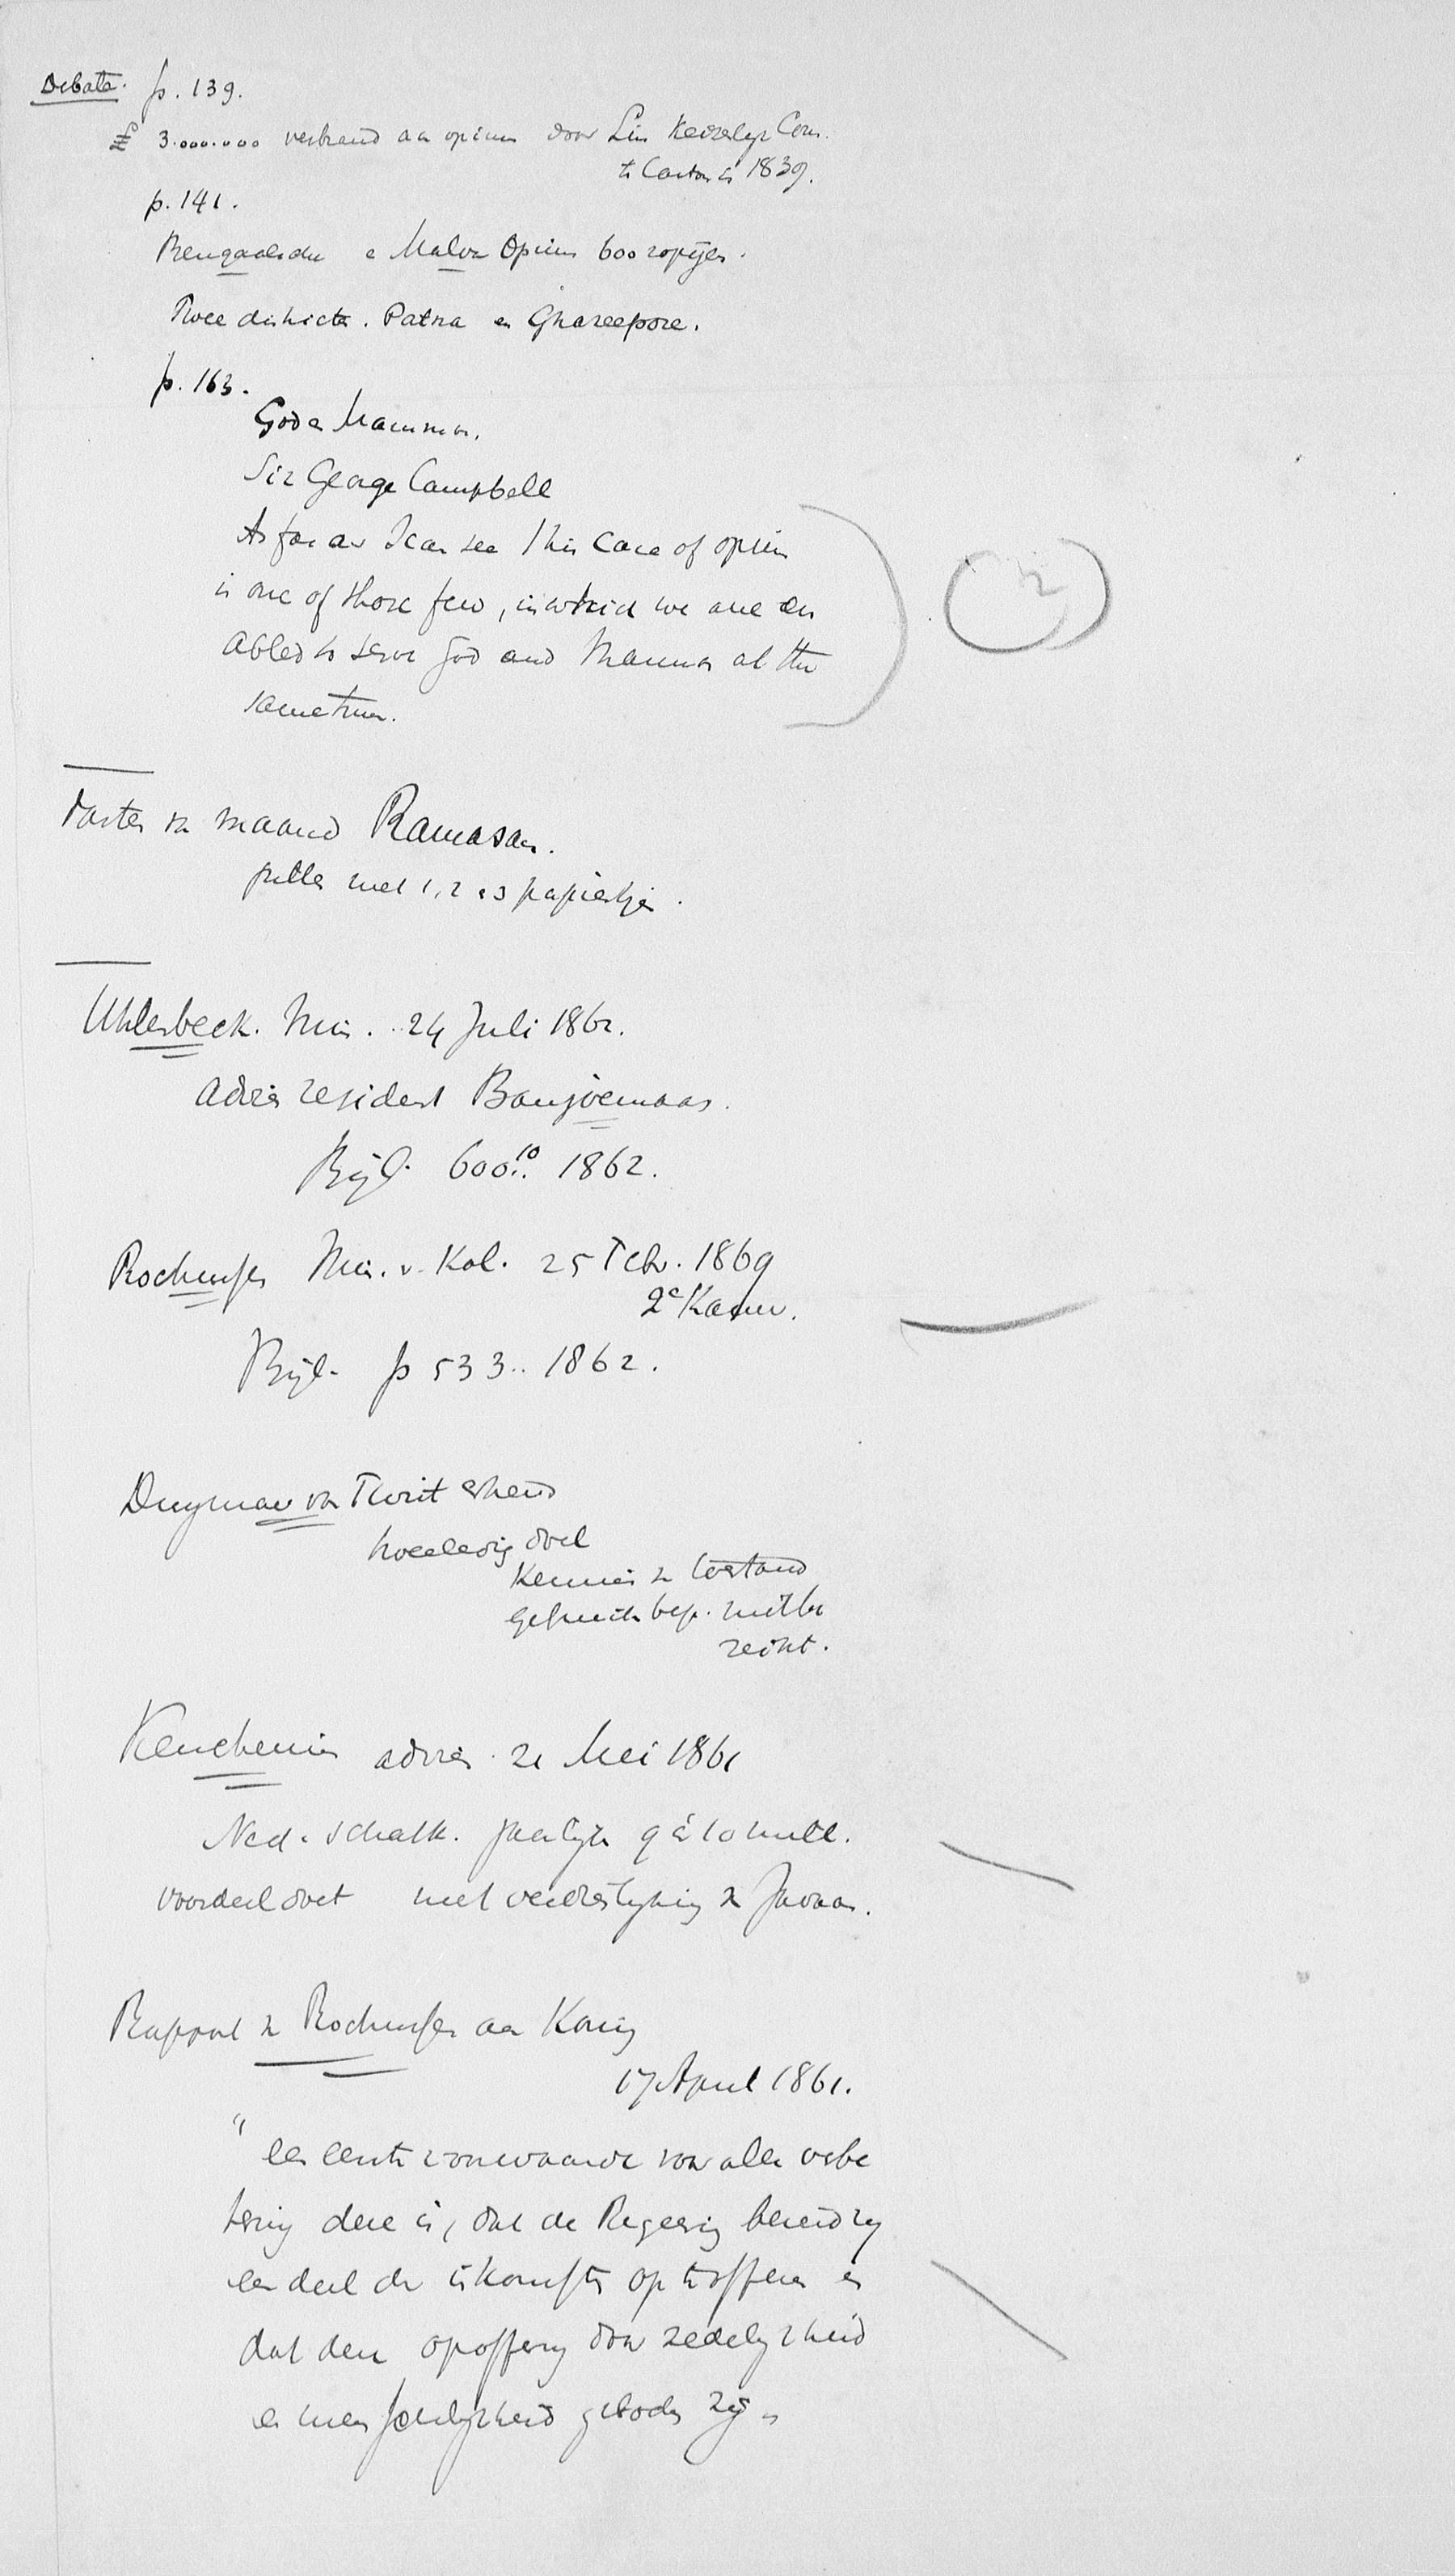 Debate. p. 139.
£ 3.000.000 verbrand aan opium door Lin Keizerlijk Com.
te Canton in 1839.
p. 141.
Bengaalsche en Malva Opium 600 ropijen.
Twee districten. Patna en Ghazeepore.
p. 163.
God en Mammon.
Sir George Campbell
As far as I can see this case of opium
is one of those few, in which we are en
abled to serve God and Mammon at the
same time.
Vasten in maand Ramasan.
met 1, 2 en 3 papiertjes.
Uhlenbeck. Min. 24 Juli 1862.
advies resident Banjoemaas.
Bijl. 600 10 1862.
2
Rochussen Min. v. Kol. 25 Febr. 1869
2e Kamer.
Bijl. p 533.. 1862.
Duymaer van Twist
tweeledig doel
Kennis van toestand
Keuchenius advies 21 Mei 1861
Ned. schatk. jaarlijks 9 à 10 mill.
voordeel doet met verdierlijking van Javaan.
Rapport van Rochussen aan Koning
17 April 1861.
" een eerste voorwaarde voor alle verbe
tering deze is, dat de Regeering bereid zij
een deel der inkomsten op te offeren en
dat deze opoffering door zedelijkheid
en menschelijkheid geboden zij "